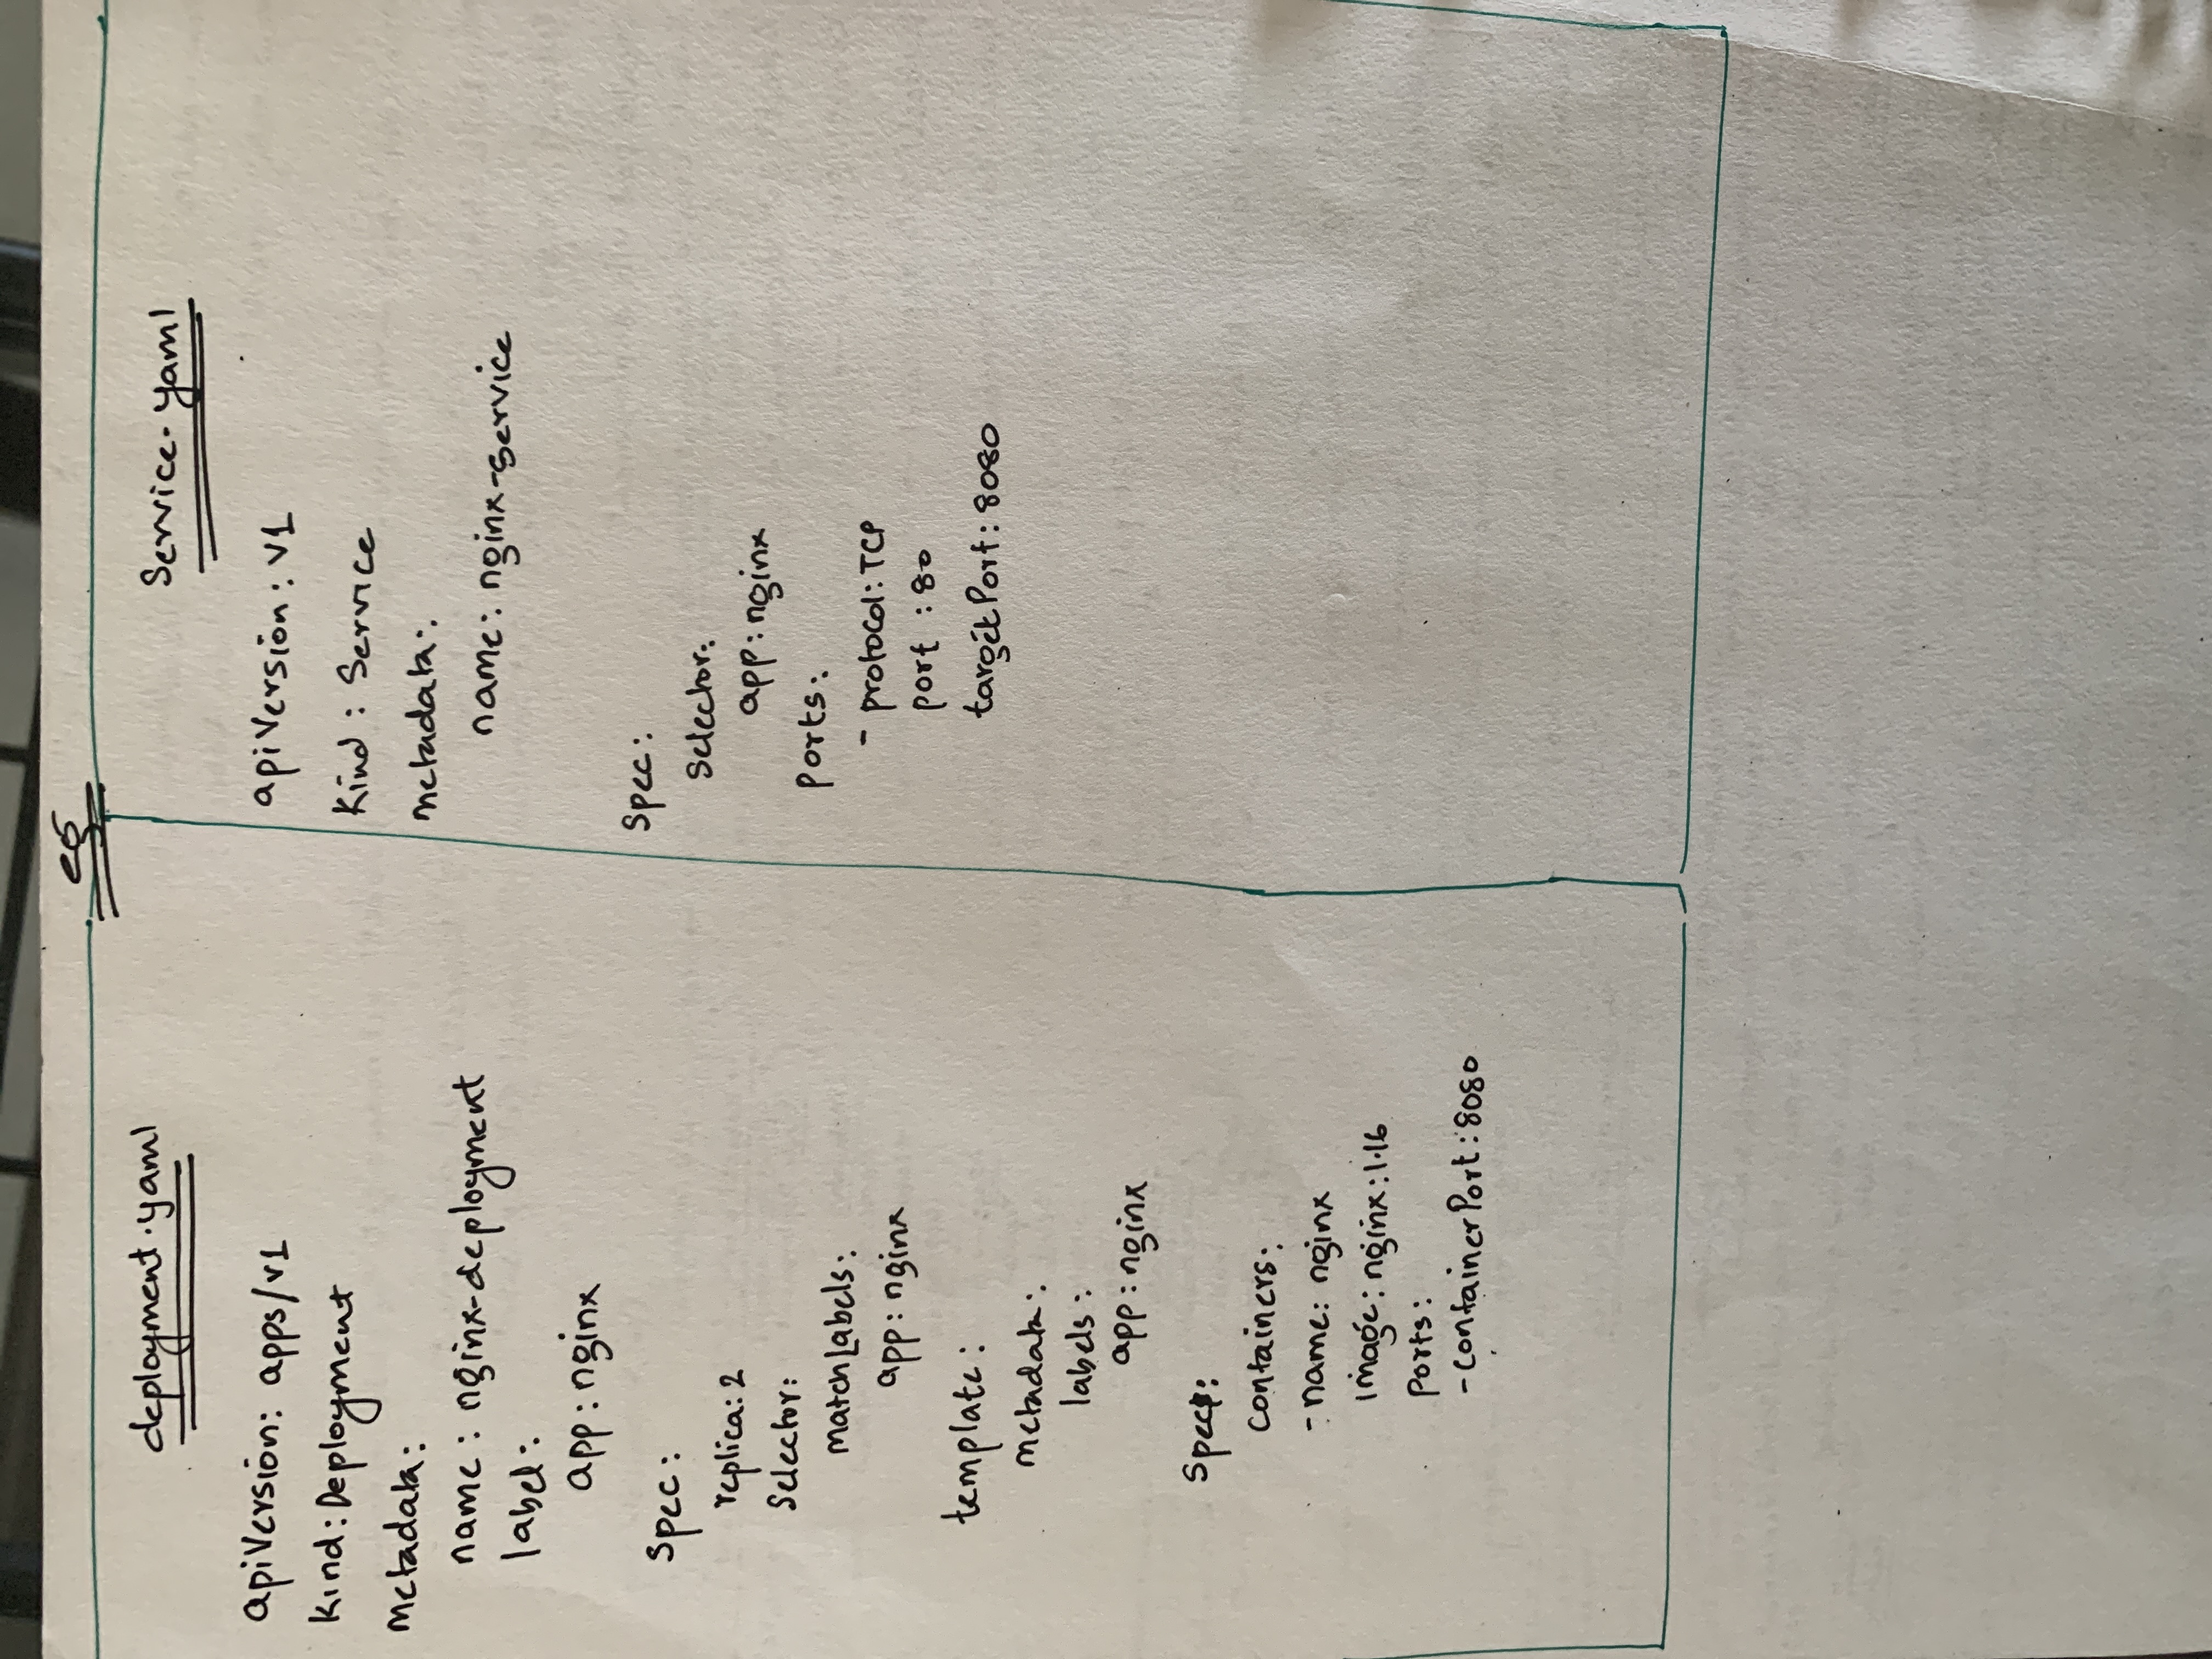 eg
deployment.yaml
apiVersion: apps/v1
Kind: Deployment
metadata:
name: nginx-deployment
label:
app: nginx
Spec:
replica: 2
Selector:
matchLabels:
app: nginx
template:
metadata:
labels:
app: nginx
Spec:
Containers:
- name: nginx
image: nginx:1.16
Ports:
- containerPort: 8080
Service.yaml
apiVersion: v1
Kind: Service
metadata:
name: nginx-service
Spec:
Selector:
app: nginx
Ports:
- protocol: TCP
port : 80
targetPort: 8080